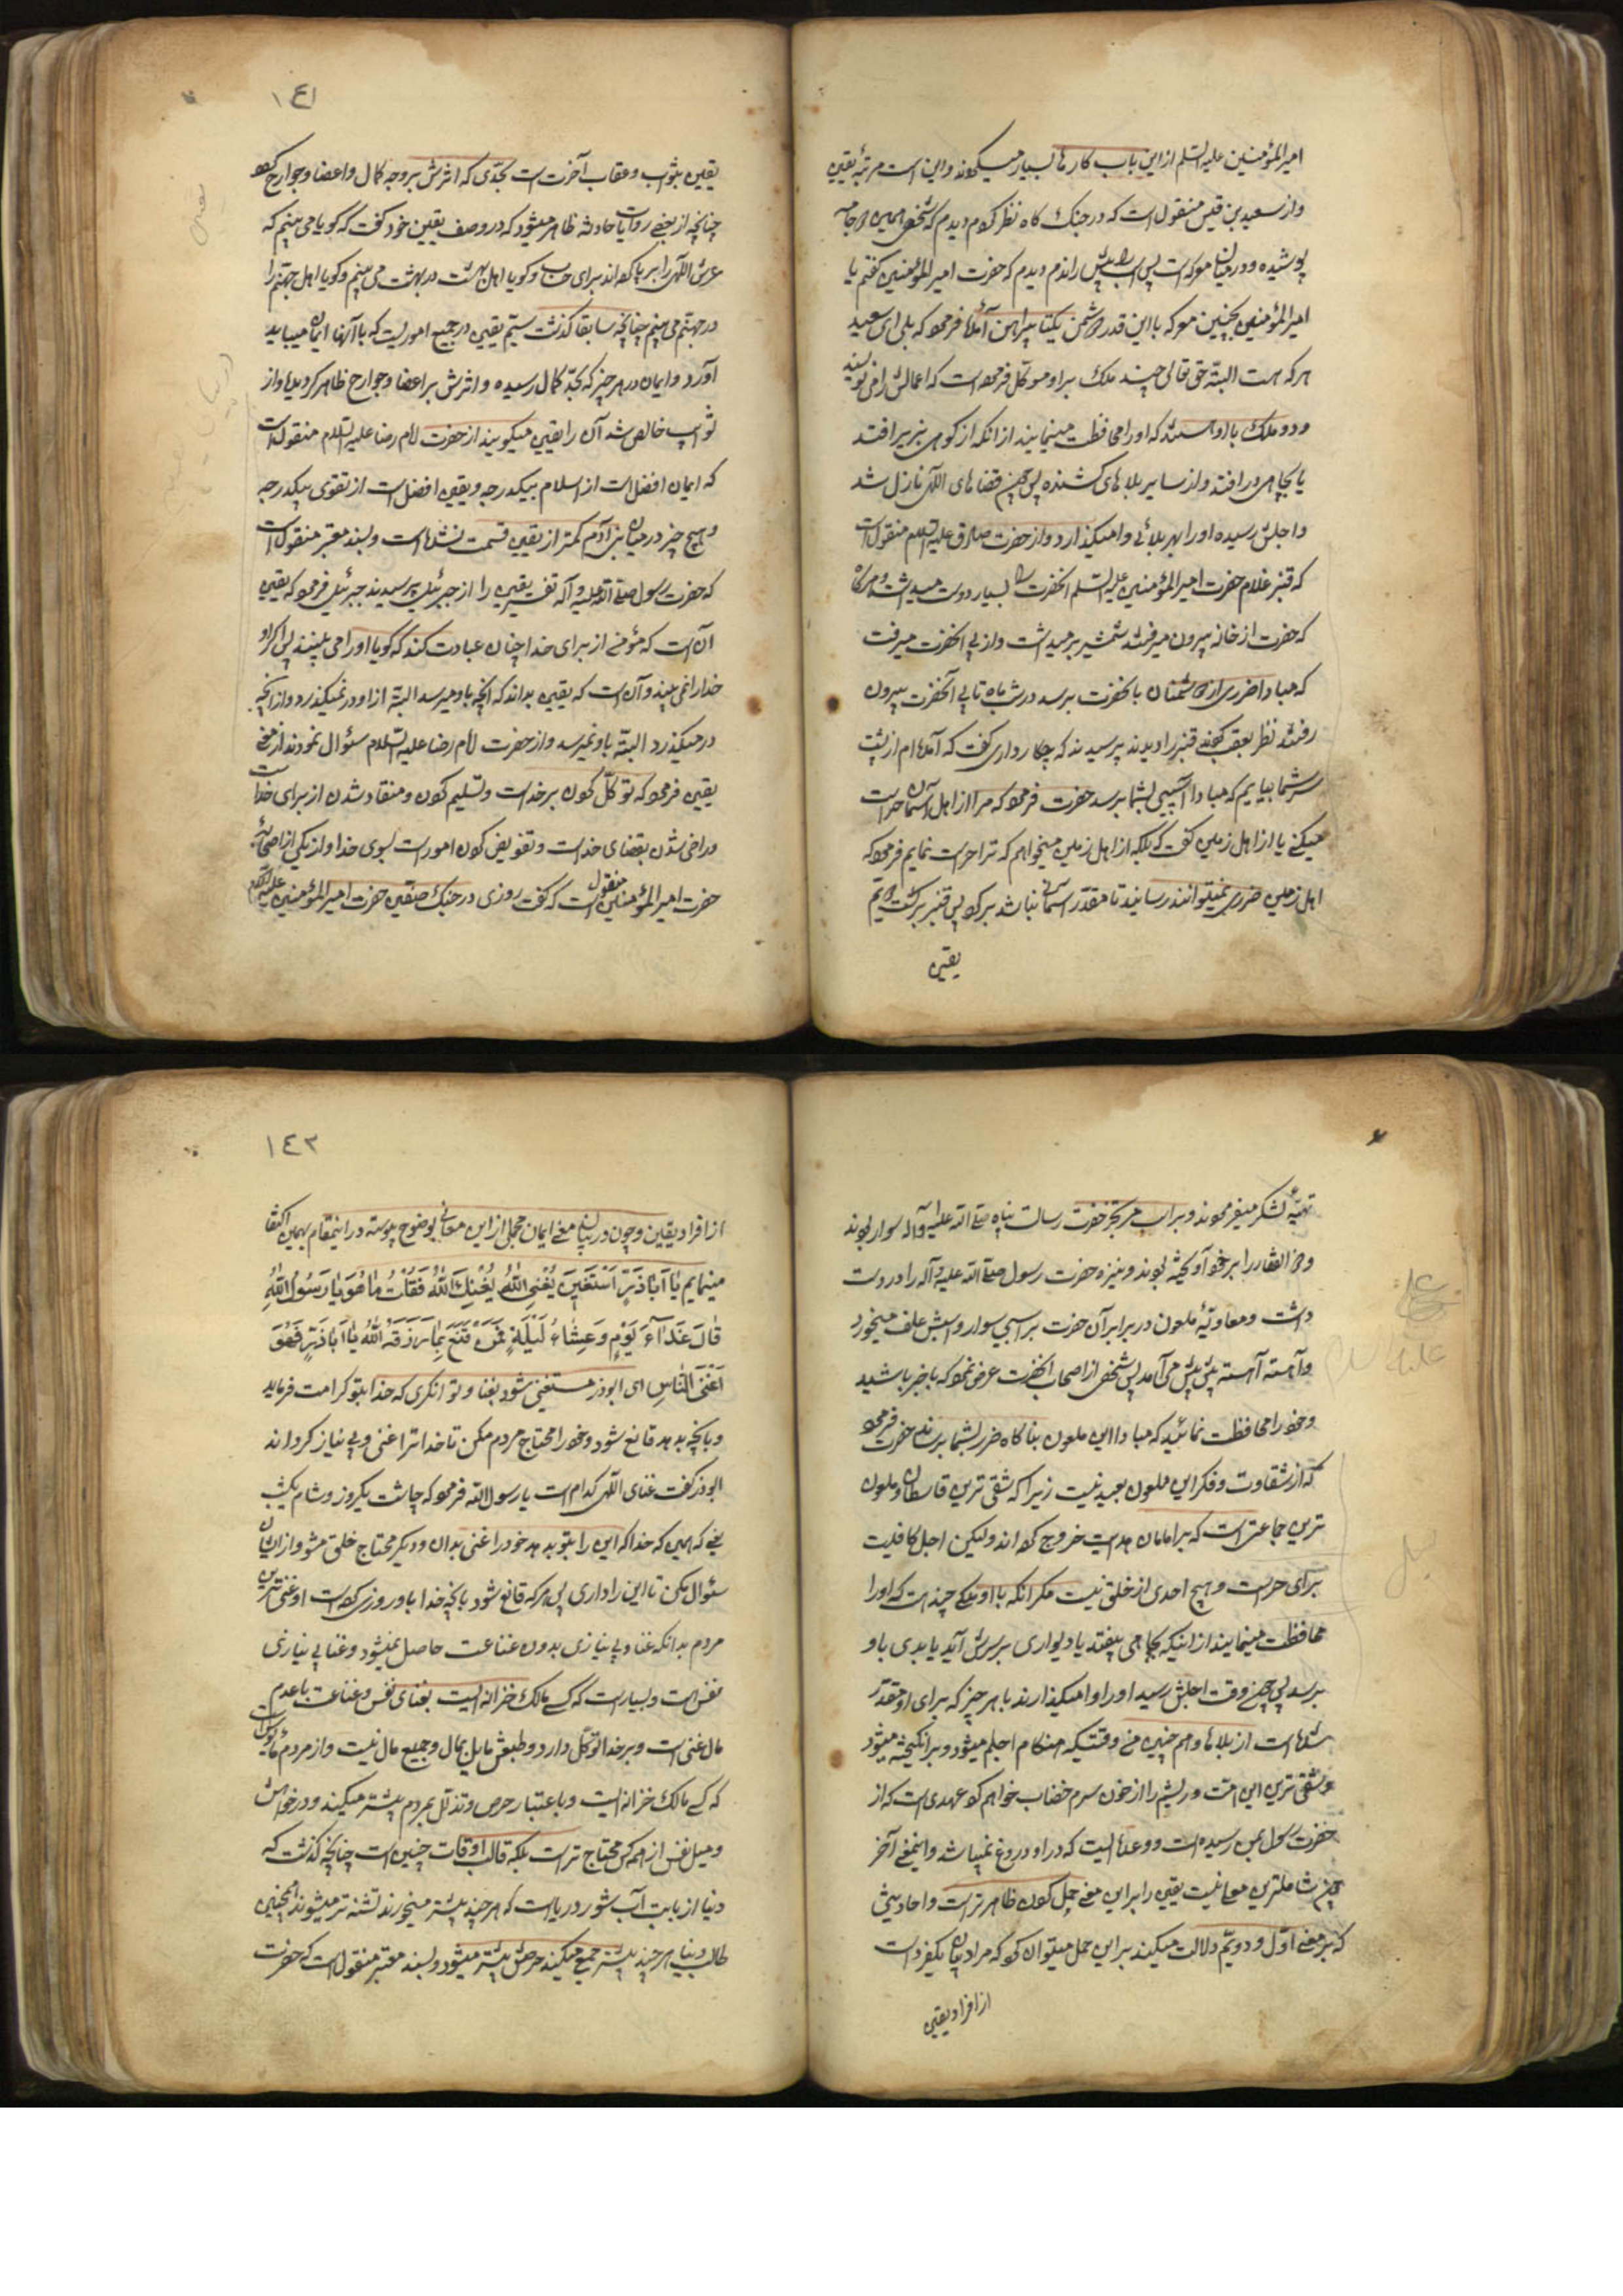 امیرالمؤمنین علیه السلم از این باب کارها بسیار میکردند و این است مرتبهٔ یقین
و از سعید بن قیس منقول است که در جنگ کاه نظر کردم دیدم که شخص همین دو جامه
پوشیده و در میان معرکه است پس اسب را پیش راندم دیدم که حضرت امیرالمؤمنین گفتم یا
امیرالمؤمنین بچنین معرکه با این قدر دشمن یکتا پیراهن آمدهٔ فرمود که بلی ای سعید
هر که هست البته حق تعالی چند ملک بر او موکل فرموده است که اعمالش را می نویسند
و دو ملک با او هستند که او را محافظت مینمایند از انکه از کوهی بزیر افتد
یا بچاهی در افتد و از سایر بلاهای کشنده پس چون قضاهای اللهی نازل شد
و اجلش رسیده او را بهر بلائی وامیگذارد و از حضرت صادق علیه السلام منقول است
که قنبر غلام حضرت امیرالمؤمنین علیه السلم انحضرت را بسیار دوست میداشت و هرکاه
که حضرت از خانه بیرون میرفتند شمشیر برمیداشت و از پی انحضرت میرفت
که مبادا ضرری از دشمنان بانحضرت برسد در شب ماه تابی آنحضرت بیرون
رفتند نظر بعقب کردند قنبر را دیدند پرسیدند که چکار داری گفت که آمده ام از پشت
سر شما بیایم که مبادا آسیبی بشما برسد حضرت فرمود که مرا از اهل آسمان حراست
میکنی یا از اهل زمین گفت که بلکه از اهل زمین میخواهم که ترا حراست نمایم فرمود که
اهل زمین ضرری نمیتوانند رسانید تا مقدر آسمانی نباشد برگرد پس قنبر برگشت دویم
یقین
١٤١
یقین بثواب و عقاب آخرت است بحدی که اثرش بر وجه کمال و اعضا و جوارح کرده
چنانچه از بعضی روایات حادثه ظاهر میشود که در وصف یقین خود گفت که گویا می بینم که
عرش اللهی را بر پا کرده اند برای حساب و گویا اهل بهشت در بهشت می بینم و گویا اهل جهنم را
در جهنم می بینم چنانچه سابقا گذشت سیم یقین در جمیع اموریست که باآنها ایمان میباید
آورد و ایمان در هر چیز که بحد کمال رسیده و اثرش بر اعضا و جوارح ظاهر گردیده و از
خالص شد آن را یقین میگویند از حضرت امام رضا علیه السلام منقول است
که ایمان افضل است از اسلام بیکدرجه و یقین افضل است از تقوی بیکدرجه
و هیچ چیز در میان بنی آدم کمتر از یقین قسمت نشده است و بسند معتبر منقول است
که حضرت رسول صلی الله علیه و آله تفسیر یقین را از جبرئیل پرسیدند جبرئیل فرمود که یقین
آن است که مؤمن از برای خدا چنان عبادت کند که گویا او را می بیند پس اگر او
خدا را نمی بیند و آن است که یقین بداند که آنچه باو میرسد البته از او در نمیگذرد و از آنچه
در میگذرد البته باو نمیرسد و از حضرت امام رضا علیه السلام سئوال نمودند از معنی
یقین فرمود که توکل کردن بر خداست و تسلیم کردن و منقاد شدن از برای خداست
و راضی شدن بقضای خداست و تفویض کردن امور است بسوی خدا و از یکی از اصحاب
حضرت امیرالمؤمنین منقول است که گفت روزی در جنگ صفین حضرت امیرالمؤمنین علیه السلام
تهیهٔ لشکر میفرمودند و بر اسب مرتجز حضرت رسالت پناه صلی الله علیه و آله سوار بودند
و ذوالفقار را بر خود آویخته بودند و نیزه حضرت رسول صلی الله علیه و آله را در دست
داشت و معاویهٔ ملعون در برابر آن حضرت بر اسبی سوار و اسبش علف میخورد
و آهسته آهسته پیش پیش می آمد پس شخصی از اصحاب انحضرت عرض نمود که باخبر باشید
و خود را محافظت نمائید که مبادا این ملعون بناگاه ضرر بشما برساند حضرت فرمود
که از شقاوت و فکر این ملعون بعید نیست زیرا که شقی ترین قاسطان و ملعون
ترین جماعتی است که بر امامان هدایت خروج کرده اند ولیکن اجل کافیست
برای حراست و هیچ احدی از خلق نیست مگر انکه با او ملکی چند است که او را
محافظت مینمایند از اینکه بچاهی بیفتد یا دیواری بر سرش آید یا بدی باو
برسد پس چون وقت اجلش رسید او را وامیگذارند با هر چیز که برای او مقدر
شده است از بلاها و همچنین من وقتیکه هنگام اجلم میشود و برانگیخته میشود
شقی ترین این امت و ریشم را از خون سرم خضاب خواهد کرد عهدی است که از
حضرت رسول بمن رسیده است و وعدهٔ ایست که در او دروغ نمیباشد و اینمعنی آخر
چون شاملترین معانیست یقین را بر این معنی حمل کردن ظاهرتر است و احادیثی
که بر معنی اول و دویم دلالت میکنند بر این حمل میتوان کرد که مراد بیان یکفرد است
از افراد یقین
١٤٢
از افراد یقین و چون در بیان معنی ایمان مجملی از این معانی بوضوح پیوسته در اینمقام بهمین اکتفا
مینمایم یَا اَبَاذَرٍّ اَسْتَغْنِی بِغِنَی اللّٰهِ یُغْنِکَ اللّٰهُ فَقُلْتُ مَا هُوَ یَا رَسُولَ اللّٰهِ
قَالَ غَدَآءُ یَوْمٍ وَعِشَاءُ لَیْلَةٍ فَمَنْ قَنَعَ بِمَا رَزَقَهُ اللّٰهُ یَا اَبَاذَرٍّ فَهُوَ
اَغْنَی النَّاسِ ای ابوذر مستغنی شود بغنا و توانگری که خدا بتو کرامت فرماید
و بانچه بدهد قانع شود و خود را محتاج مردم مکن تا خدا ترا غنی و بی نیاز گرداند
ابوذر گفت غنای اللهی کدام است یا رسول الله فرمود که چاشت یکروز و شام یکشب
یعنی که همین که خدا که این را بتو بدهد خود را غنی بدان و دیگر محتاج خلق مشو و از ایشان
سئوال مکن تا این را داری پس هر که قانع شود بانچه خدا باو روزی کرده است او غنی ترین
مردم بدانکه غنا و بی نیازی بدون قناعت حاصل نمیشود و غنا بی نیازی
نفس است و بسیار است که کسی مالک خزانه ایست بغنای نفس و قناعت با عدم
مال غنی است و بر خدا توکل دارد و طبعش مایل بمال و جمیع مال نیست و از مردم مأیوس است
که کسی مالک خزانه ایست و باعتبار حرص و تذلل بمردم بیشتر میکند و در خواهش
و میل نفس از همه کس محتاج تر است بلکه قالب اوقات چنین است چنانچه گذشت که
دنیا از بابت آب شور دریا است که هر چند بیشتر میخورند تشنه تر میشوند همچنین
طالب دنیا هر چند بیشتر جمع میکند حرصش بیشتر میشود و بسند معتبر منقول است که حضرت